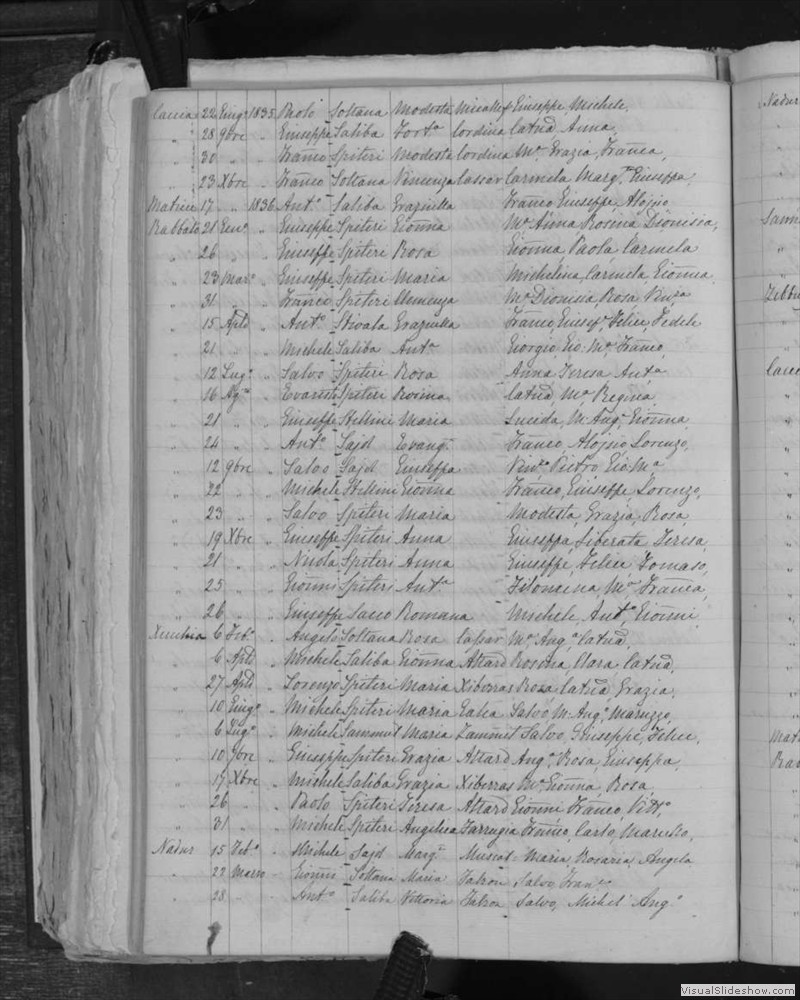 Caccia 22 Giug. 1835 Paolo Soltana Modesta Micallef Giuseppe, Michele,
" 28 9bre " Giuseppe Saliba Fort.a Cordina Catna, Anna,
" 30 " " Franco Spiteri Modesta Cordina M.a Grazia, Franca,
" 23 Xbre " Franco Soltana Vincenza Cassar Carmela Marg.a Giuseppa,
Matrice 17 " 1836 Ant.o Saliba Graziulla Franco Giuseppe, Alojsio
Rabbato 21 Gen.o " Giuseppe Spiteri Gionna M.a Anna Rosina Dionisia,
" 26 " Giuseppe Spiteri Rosa Gionna Paola Carmela
" 23 Mar.o " Giuseppe Spiteri Maria Michelina, Carmela Gionna
" 31 " " Franco Spiteri Clemenza M.a Dionisia, Rosa,
" 15 Aple " Ant.o Graziulla Franco, Felice, Fedele
" 21 " " Michele Saliba Ant.a Giorgio, Gio: M.a, Franco,
" 12 Lug.o " Salvo Spiteri Rosa Anna Teresa Ant.a
" 16 Ag.o " Evaristo Spiteri Rosina Catna, M.a Regina,
" 21 " " Giuseppe Stellini Maria M. Ang.a Gionna
" 24 " " Ant.o Sajd Evang.a Franco Alojsio Lorenzo,
" 12 9bre " Salvo Sajd Giuseppa Pietro Gio M.a
" 22 " " Michele Stellini Gionna Franco, Giuseppe, Lorenzo,
" 23 " " Salvo Spiteri Maria Modesta, Grazia, Rosa,
" 19 Xbre " Giuseppe Spiteri Anna Giuseppa, Liberata Teresa,
" 21 " " Nicola Spiteri Anna Giuseppe, Felice Tomaso,
" 25 " " Gionni Spiteri Ant.a Filomena, M.a Franca,
" 26 " " Giuseppe Romana Michele Ant.o, Gionni,
Xeuchia 6 Feb.o " Angelo Soltana Rosa Cassar M.a Ang.a Catna,
" 6 Aple " Michele Saliba Gionna Attard Rosina Clara Catna,
" 27 Aple " Lorenzo Spiteri Maria Xiberras Rosa Catna, Grazia,
" 10 Giug.o " Michele Spiteri Maria Galea Salvo, M. Ang.o
" 6 Lug.o " Michele Sammut Maria Zammit Salvo, Giuseppe, Felice,
" 10 9bre " Giuseppe Spiteri Grazia Attard Ang.a, Rosa, Giuseppa,
" 19 Xbre " Michele Saliba Grazia Xiberras M.a, Gionna, Rosa,
" 26 " " Paolo Spiteri Teresa Attard Gionni Franco, Vitt.o,
" 31 " " Michele Spiteri Angelica Farrugia Franco, Carlo,
Nadur 15 Feb.o " Michele Sajd Marg.a Muscat Maria Rosaria Angela
" 22 Marzo " Gionni Soltana Maria Falzon Salvo, Fran.o
" 28 " " Ant.o Saliba Vittoria Falzon Salvo, Michel' Ang.o
Nadur
VisualSlideshow.com